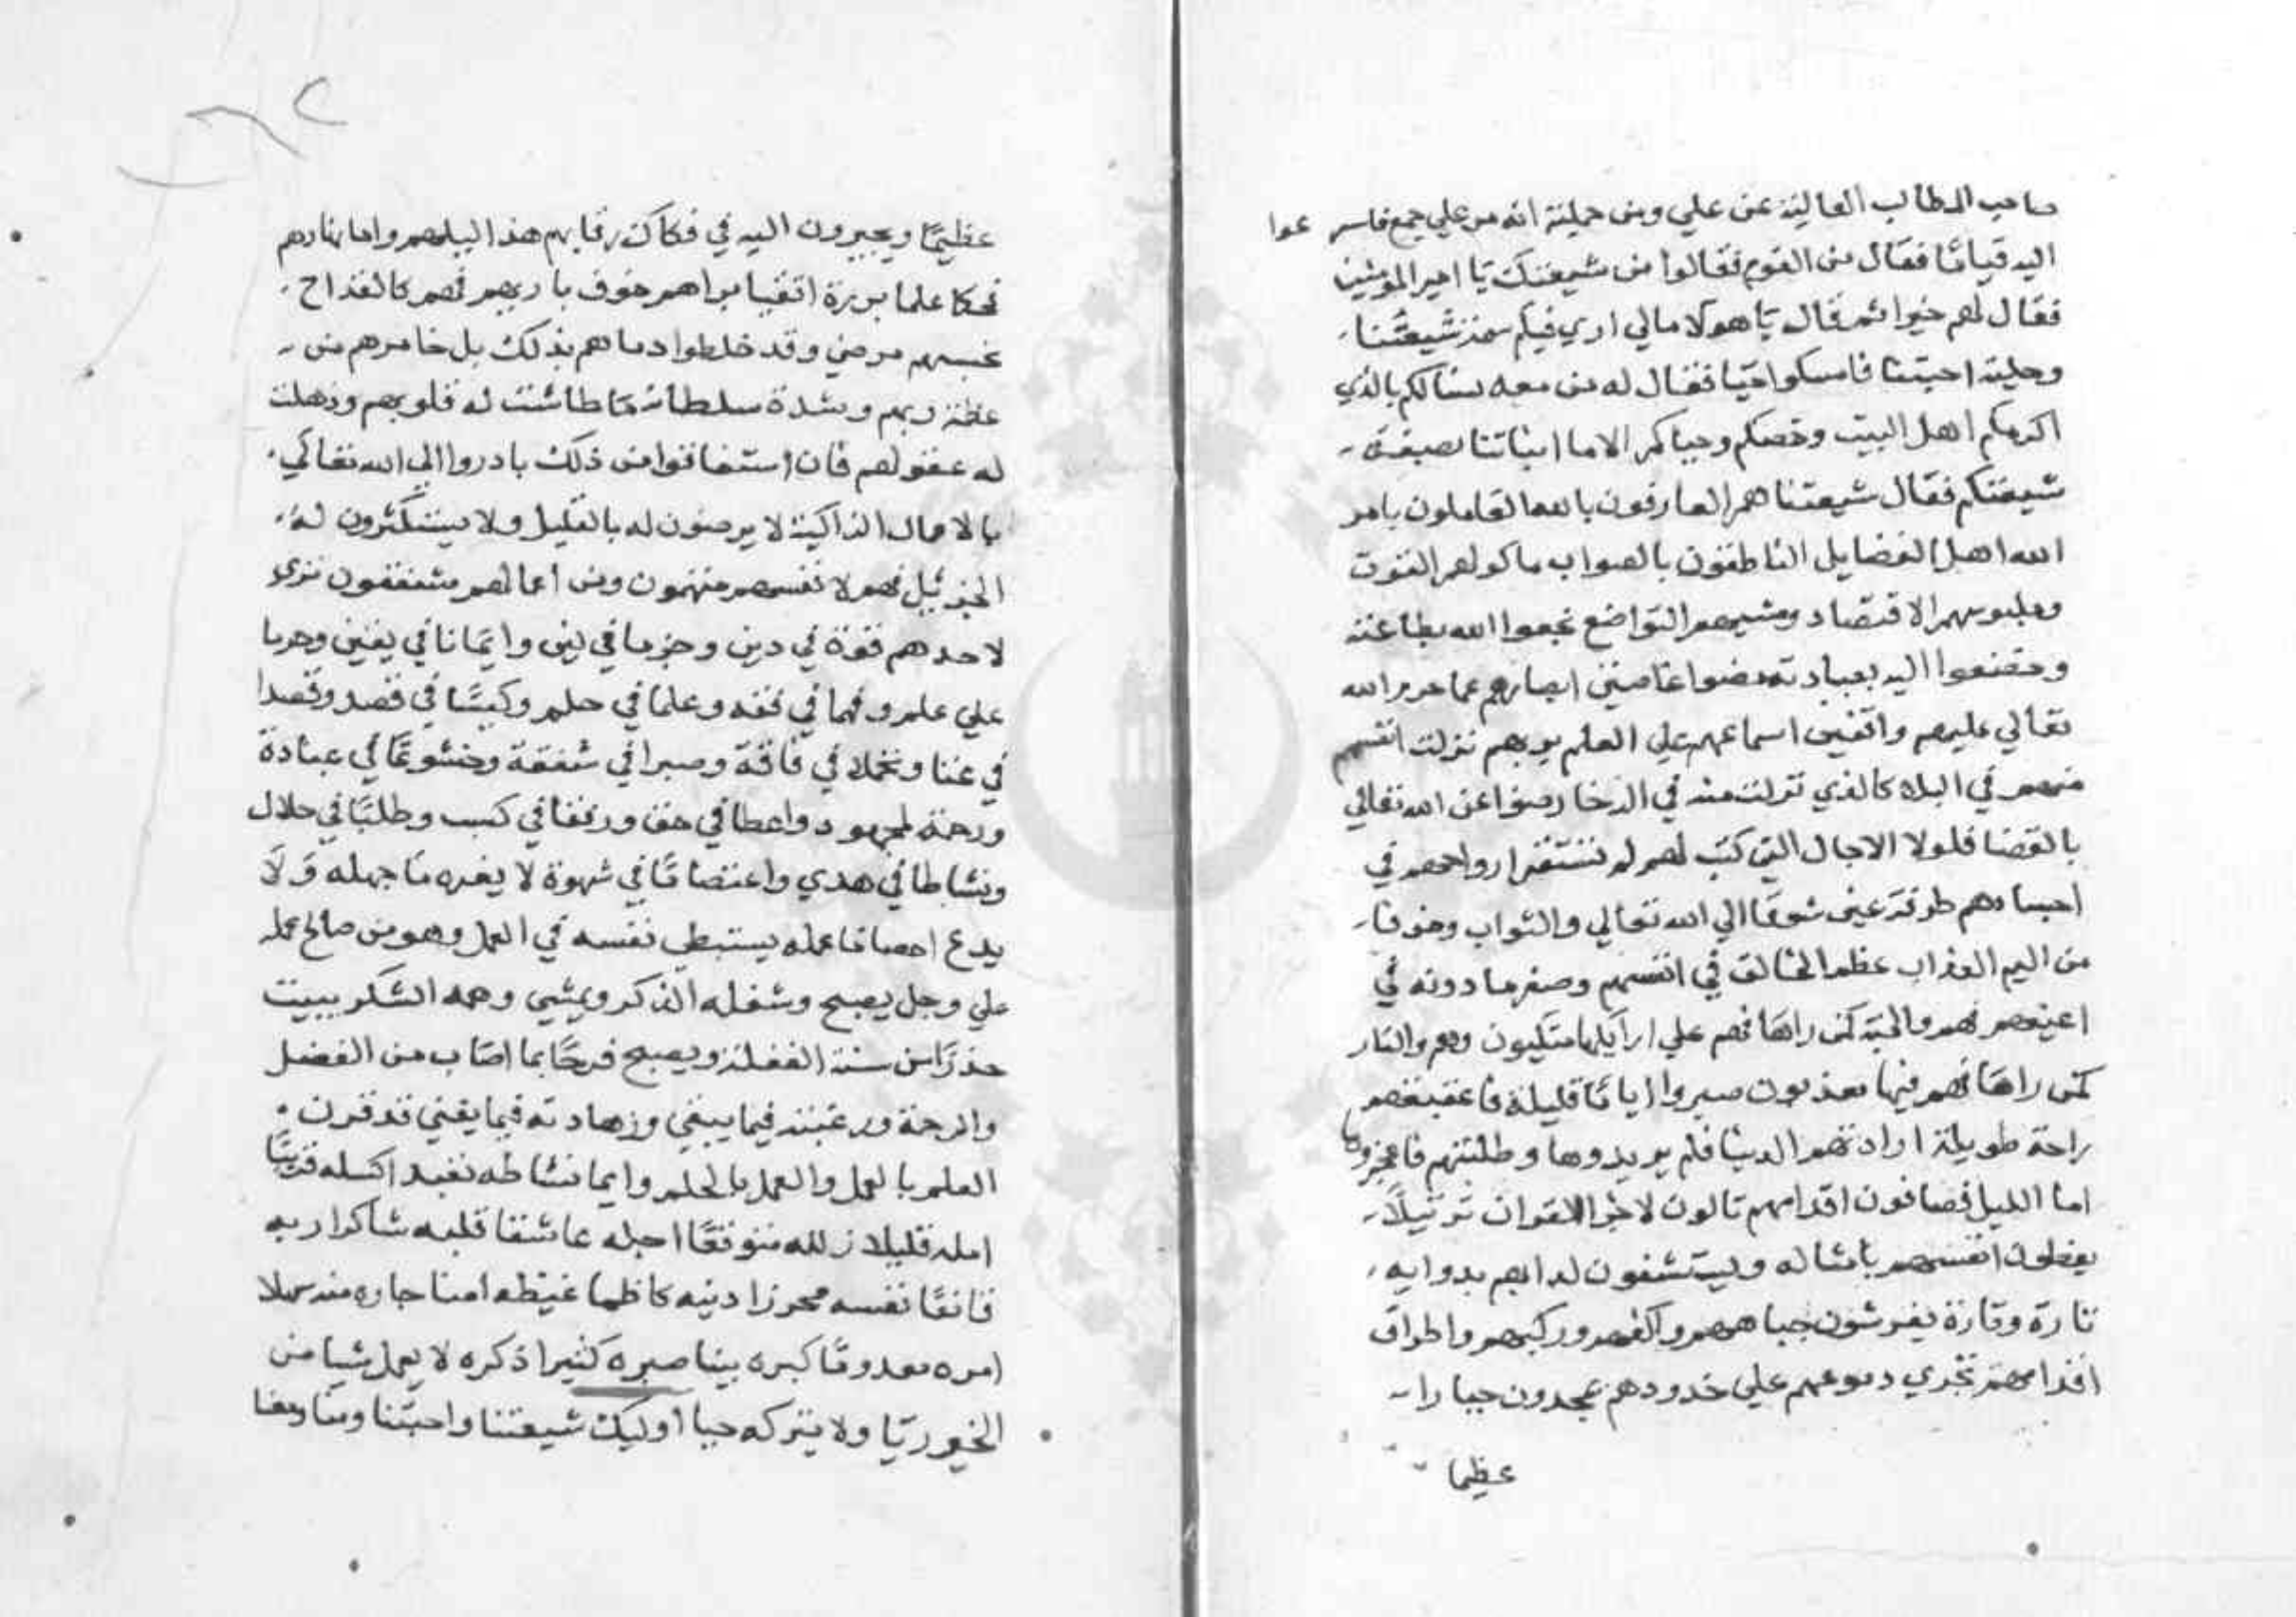 صاحب المطالب العالية عن علي ومن جملته انه مر علي جمع فاسرعوا
اليه قياما فقال من القوم فقالوا من شيعتك يا امير المومنين
فقال لهم خيرا ثم قال يا هولا مالي اري فيكم سمة شيعتنا
وحلية احبتنا فامسكوا حيا فقال له من معه نسالكم بالذي
اكرمكم اهل البيت وخصكم وحباكم الاما انباتنا بصفة
شيعتكم فقال شيعتنا هم العارفون بالله العاملون بامر
الله اهل الفضايل الناطقون بالصواب ماكولهم القوت
وملبوسهم الاقتصاد ومشيهم التواضع نجعوا الله بطاعته
وخضعوا اليه بعبادته مضوا غاضين ابصارهم عما حرم الله
تعالي عليهم واقفين اسماعهم علي العلم بربهم نزلت انفسهم
منهم في البلا كالذي نزلت منه في الرخا رضوا عن الله تعالي
بالقضا فلولا الاجال التي كتب لهم لم تستقر ارواحهم في
اجسادهم طرفة عين شوقا الي الله تعالي والثواب وخوفا
من اليم العذاب عظم الخالق في انفسهم وصغر ما دونه في
اعينهم فهم والجنة كمن راها فهم علي ارايكها متكيون وهم والنار
كمن راها فهم فيها معذبون صبروا اياما قليلة فاعقبتهم
راحة طويلة ارادتهم الدنيا فلم يريدوها وطلبتهم فاعجزوها
اما الليل فصافون اقدامهم تالون لاجزا القران ترتيلا
يعظون انفسهم بامثاله ويستشفون لدايهم بدوايه
تارة وتارة يفرشون جباههم واكفهم وركبهم واطراف
اقدامهم تجري دموعهم علي خدودهم يمجدون جبارا
عظيما
عظيما ويجيرون اليه في فكاك رقابهم هذا ليلهم واما نهارهم
فحكما علما بررة اتقيا براهم خوف باريهم فهم كالقداح
تحسبهم مرضي وقد خلطوا وما هم بذلك بل خامرهم من
عظمة ربهم وشدة سلطانه ما طاشت له قلوبهم وذهلت
له عقولهم فان استفاقوا من ذلك بادروا الي الله تعالي
بالاعمال الزاكية لا يرضون له بالقليل ولا يستكثرون له
الجزيل فهم لانفسهم متهمون ومن اعمالهم مشفقون نري
لاحدهم قوة في دين وحزما في لين وايمانا في يقين وحرصا
علي علم وفهما في فقه وعلما في حلم وكيسا في قصد وقصدا
في غنا وتجملا في فاقة وصبرا في شفقة وخشوعا في عبادة
ورحمة لمجهود واعطا في حق ورفقا في كسب وطلبا في حلال
ونشاطا في هدي واعتصاما في شهوة لا يغره ما جهله ولا
يدع احصا ما عمله يستبطي نفسه في العمل وهو من صالح عمله
علي وجل يصبح وشغله الذكر ويمسي وهمه الشكر يبيت
حذرا من سنة الغفلة ويصبح فرحا بما اصاب من الفضل
والرحمة ورغبته فيما يبقي وزهادته فيما يفني قد قرن
العلم بالعمل والعمل بالحلم دايما نشاطه بعيد اكسله قريبا
امله قليلا زلله متوقعا اجله عاشقا قلبه شاكرا ربه
قانعا نفسه محرزا دينه كاظما غيظه امنا جاره منه سهلا
امره معدوما كبره بينا صبره كثيرا ذكره لا يعمل شيا من
الخير ريا ولا يتركه حيا اوليك شيعتنا واحبتنا ومنا ومعنا